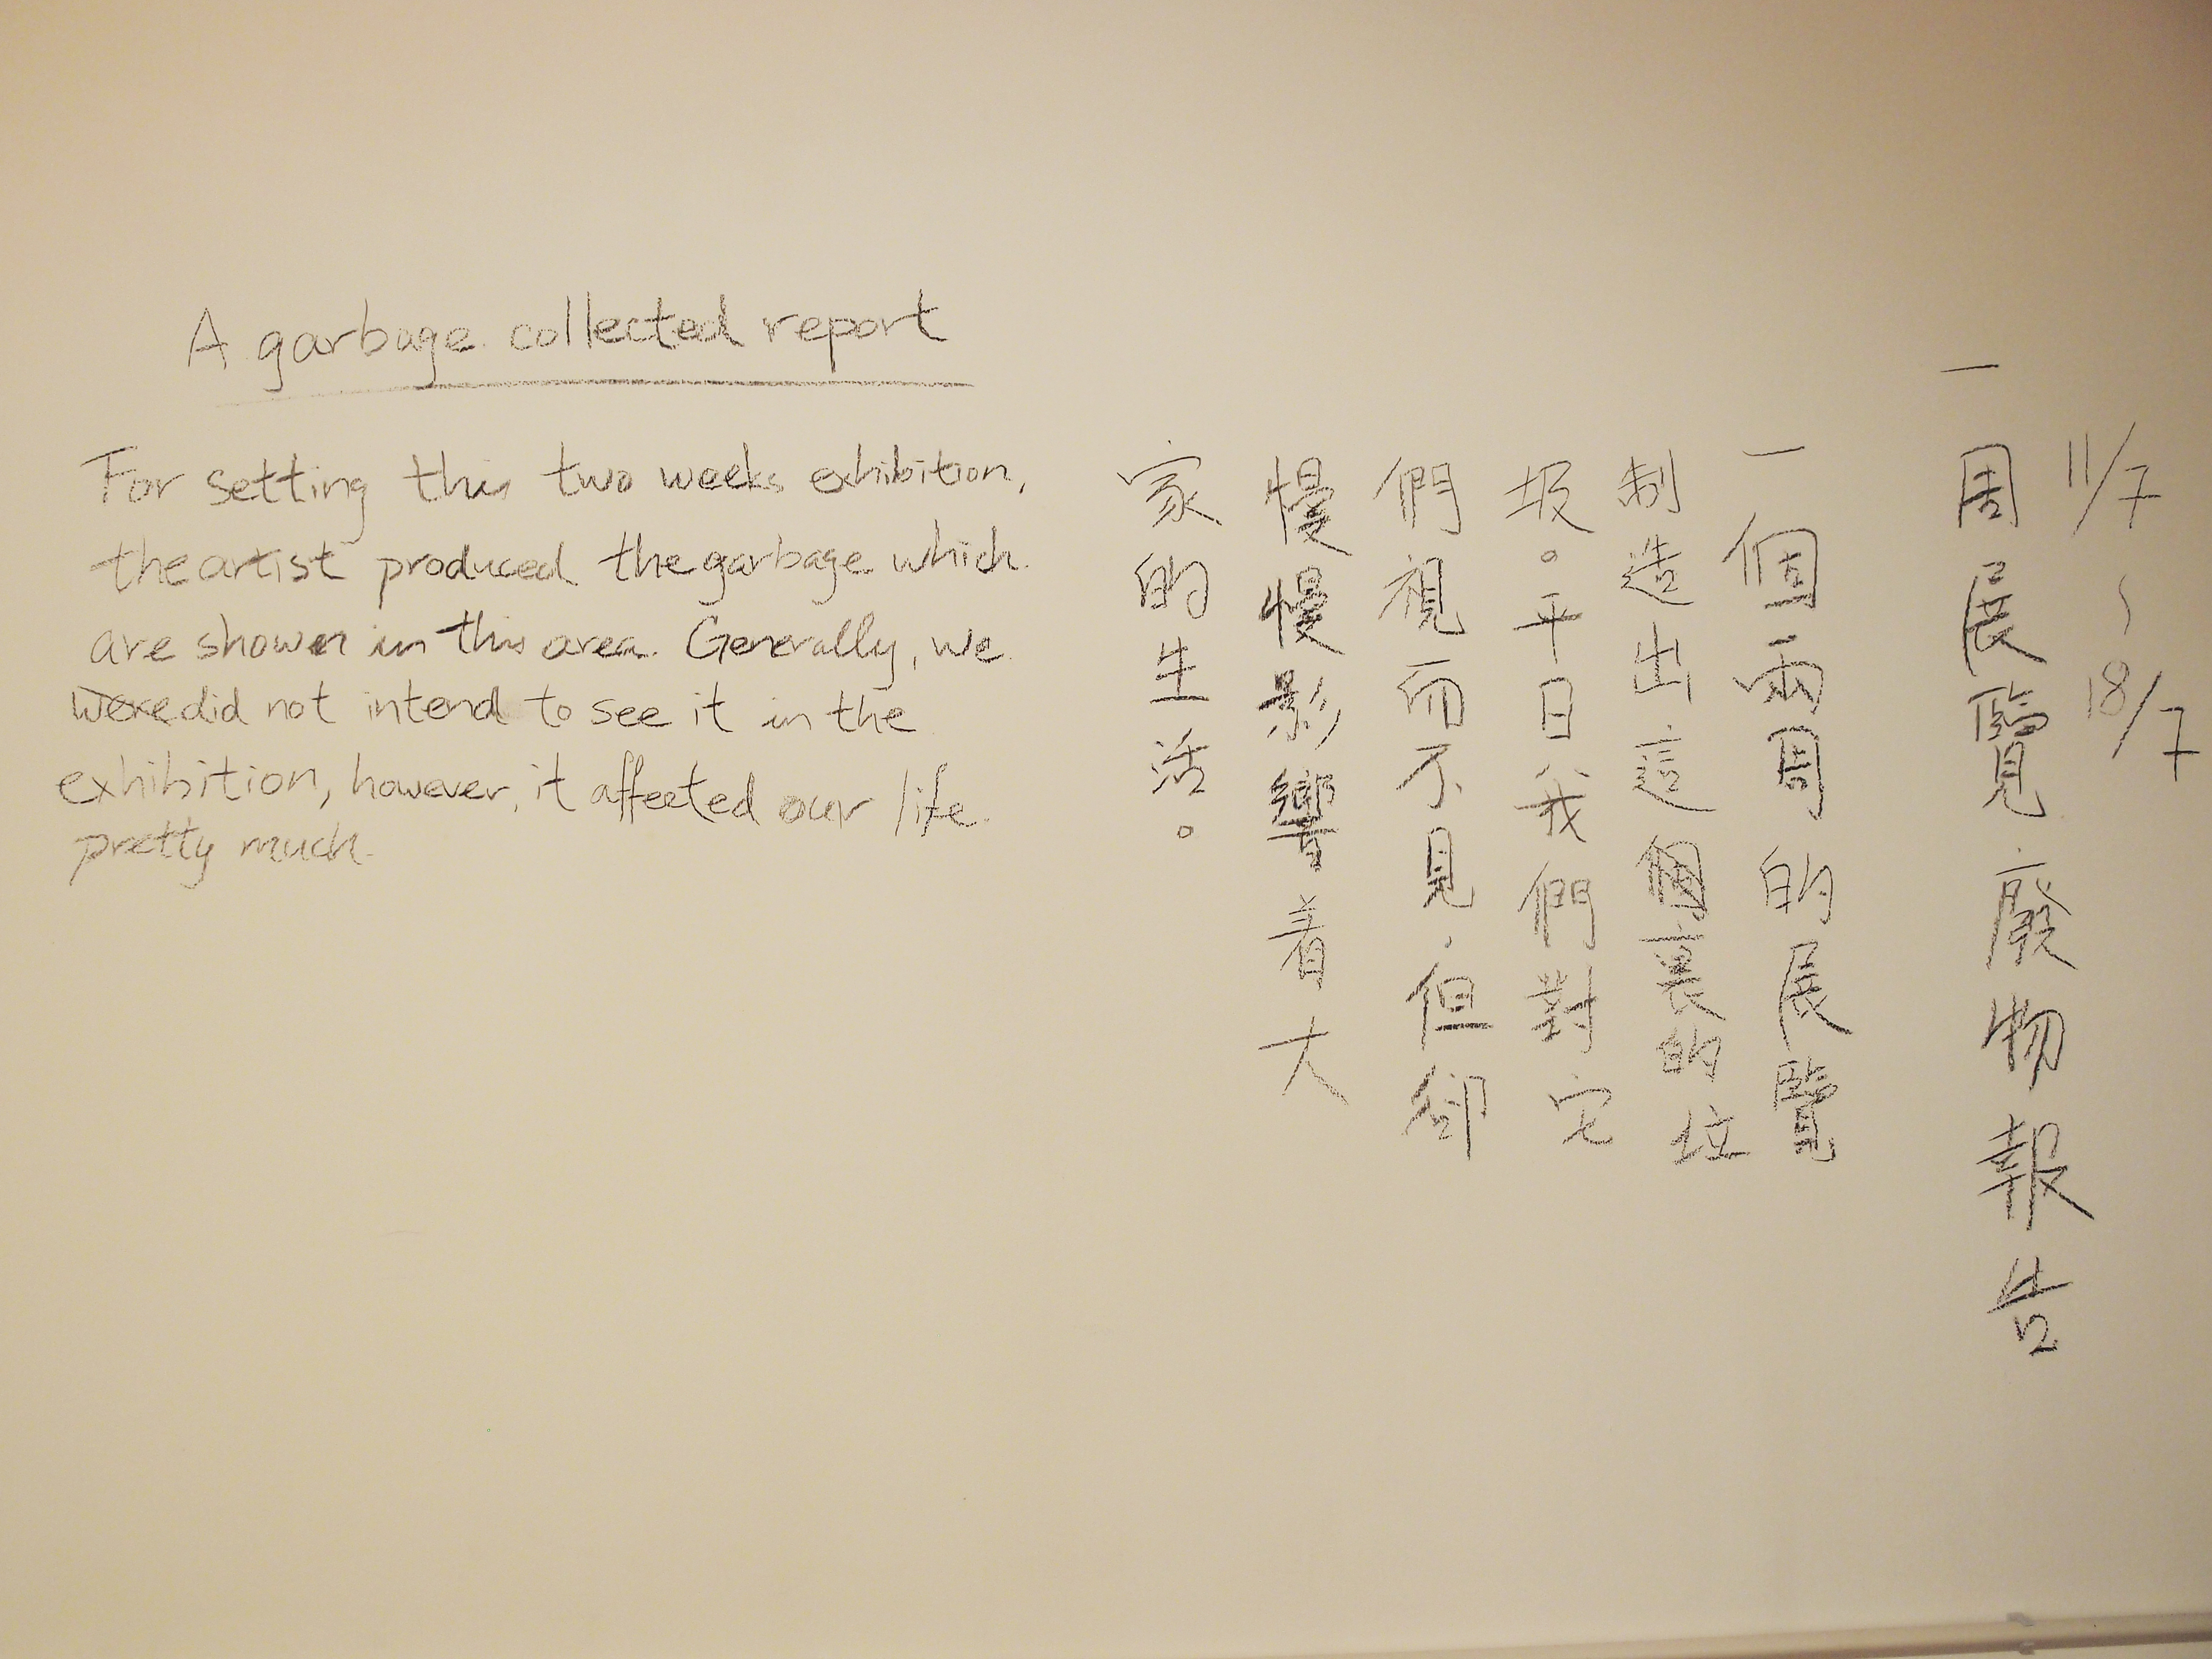 A garbage collected report
For setting this two weeks exhibition,
the artist produced the garbage which
are shown in this area. Generally, we
were did not intend to see it in the
exhibition, however, it affected our life
pretty much.
11/7 ~ 18/7
一周展覽廢物報告
一個兩周的展覽
制造出這個裏的垃
圾。平日我們對它
們視而不見,但卻
慢慢影響着大
家的生活。